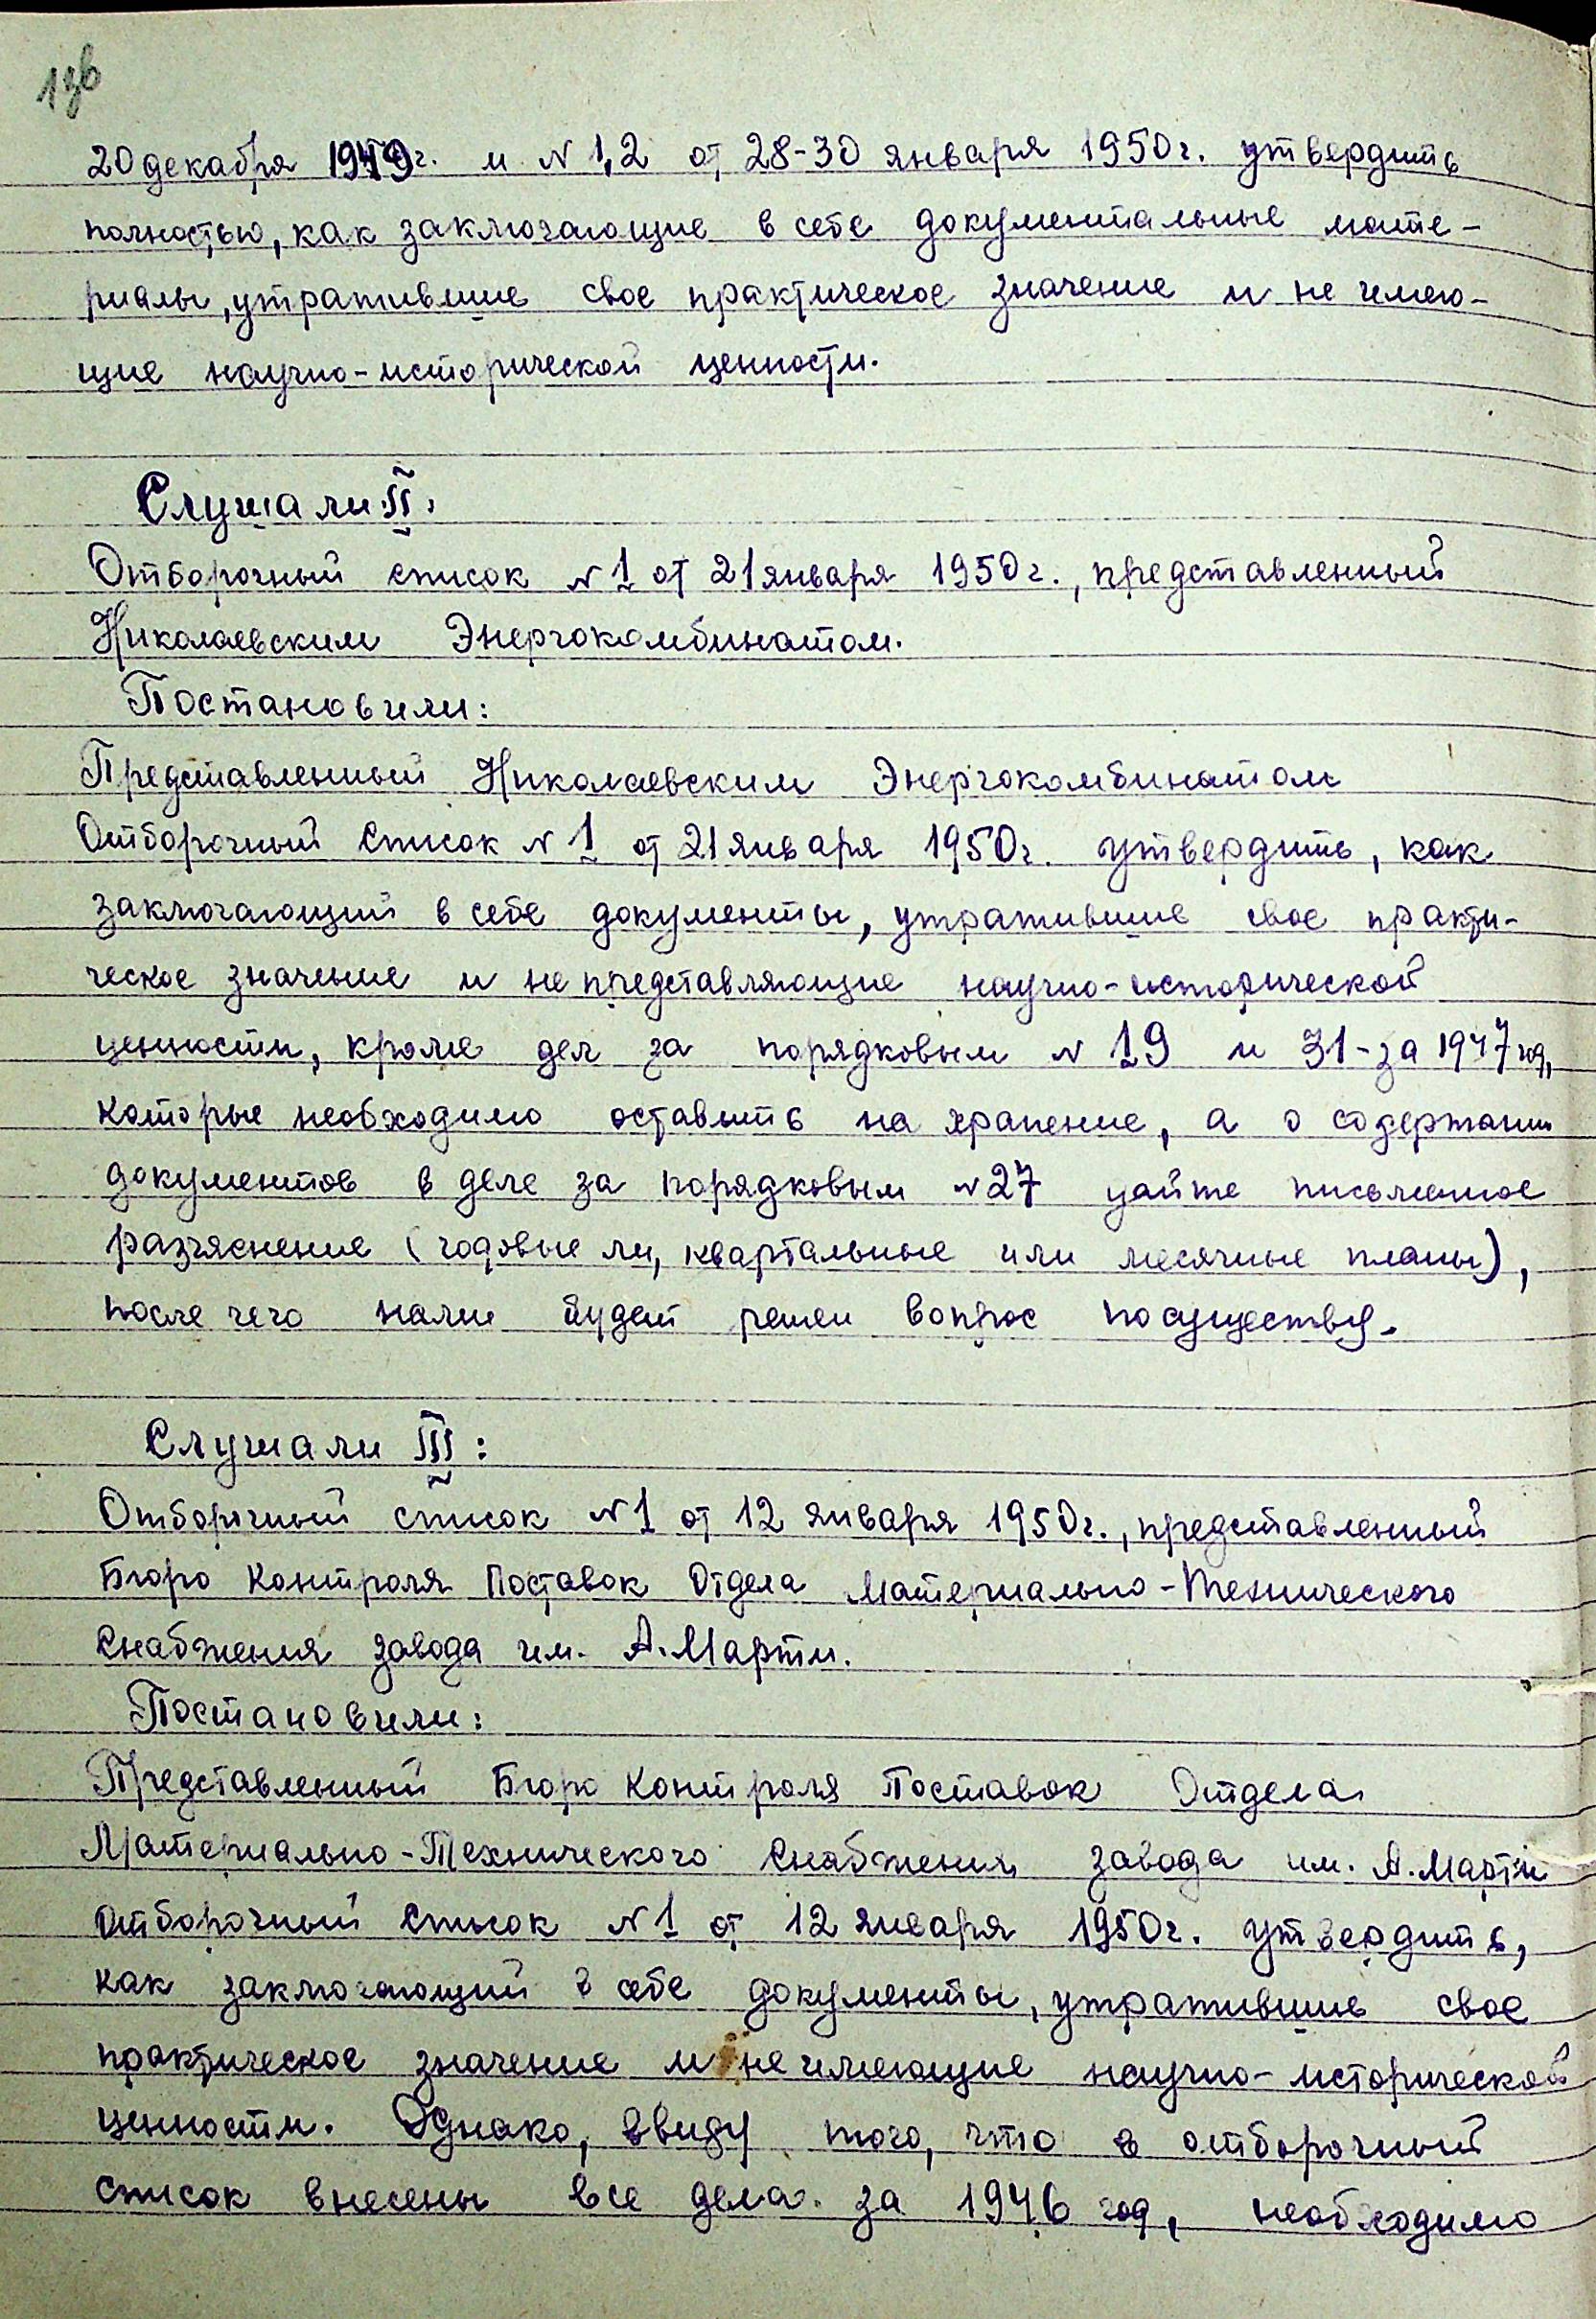 13в
20 декабря 1949г. и N 1,2 от 28-30 января 1950г. утвердить
полностью, как заключающие в себе документальные мате-
риалы, утратившие свое практическое значение и не имею-
щие научно-исторической ценности.
Слушали II:
Отборочный список N 1 от 21 января 1950г., представленный
Николаевским Энергокомбинатом.
Постановили:
Представленный Николаевским Энергокомбинатом
Отборочный Список N 1 от 21 января 1950г. утвердить, как
заключающий в себе документы, утратившие свое практи-
ческое значение и не представляющие научно-исторической
ценности, кроме дел за порядковым N 19 и 31-за 1947 год,
которые необходимо оставить на хранение, а о содержании
документов в деле за порядковым N 27 дайте письменное
разъяснение (годовые ли, квартальные или месячные планы),
после чего нами будет решен вопрос по существу.
Слушали III:
Отборочный список N 1 от 12 января 1950г., представленный
Бюро Контроля Поставок Отдела Материально-Технического
Снабжения завода им. А. Марти.
Постановили:
Представленный Бюро Контроля Поставок Отдела
Материально-Технического Снабжения завода им. А. Марти
Отборочный Список N 1 от 12 января 1950г. утвердить,
как заключающий в себе документы, утратившие свое
практическое значение и не имеющие научно-исторической
ценности. Однако, ввиду того, что в отборочный
список внесены все дела за 1946 год, необходимо